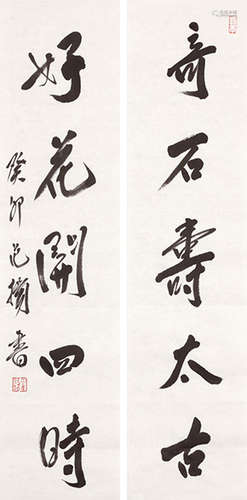 奇石壽太古
好花開四時
癸卯 書